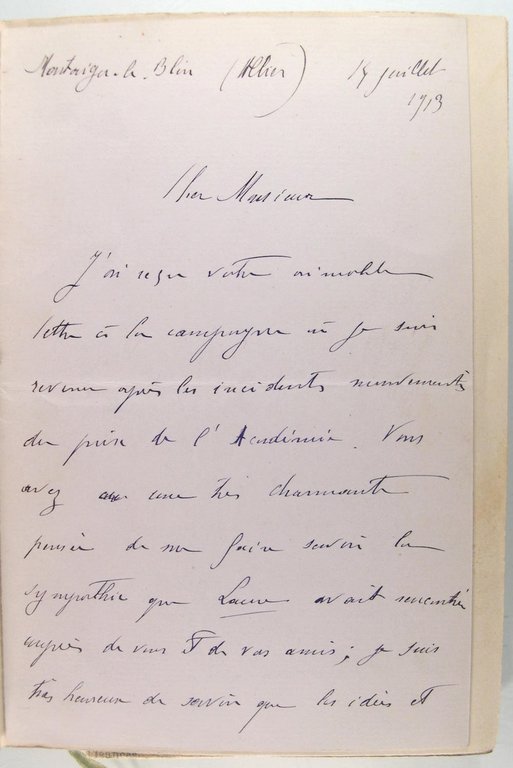 Montaigu-le-Blin (Allier) 14 juillet
1913
Cher Monsieur
J'ai reçu votre aimable
lettre à la campagne où je suis
revenue après les incidents mouvementés
du prix de l'Académie. Vous
avez eu une très charmante
pensée de me faire savoir la
sympathie que Laure avait rencontrée
auprès de vous et de vos amis; je suis
très heureuse de savoir que les idées et